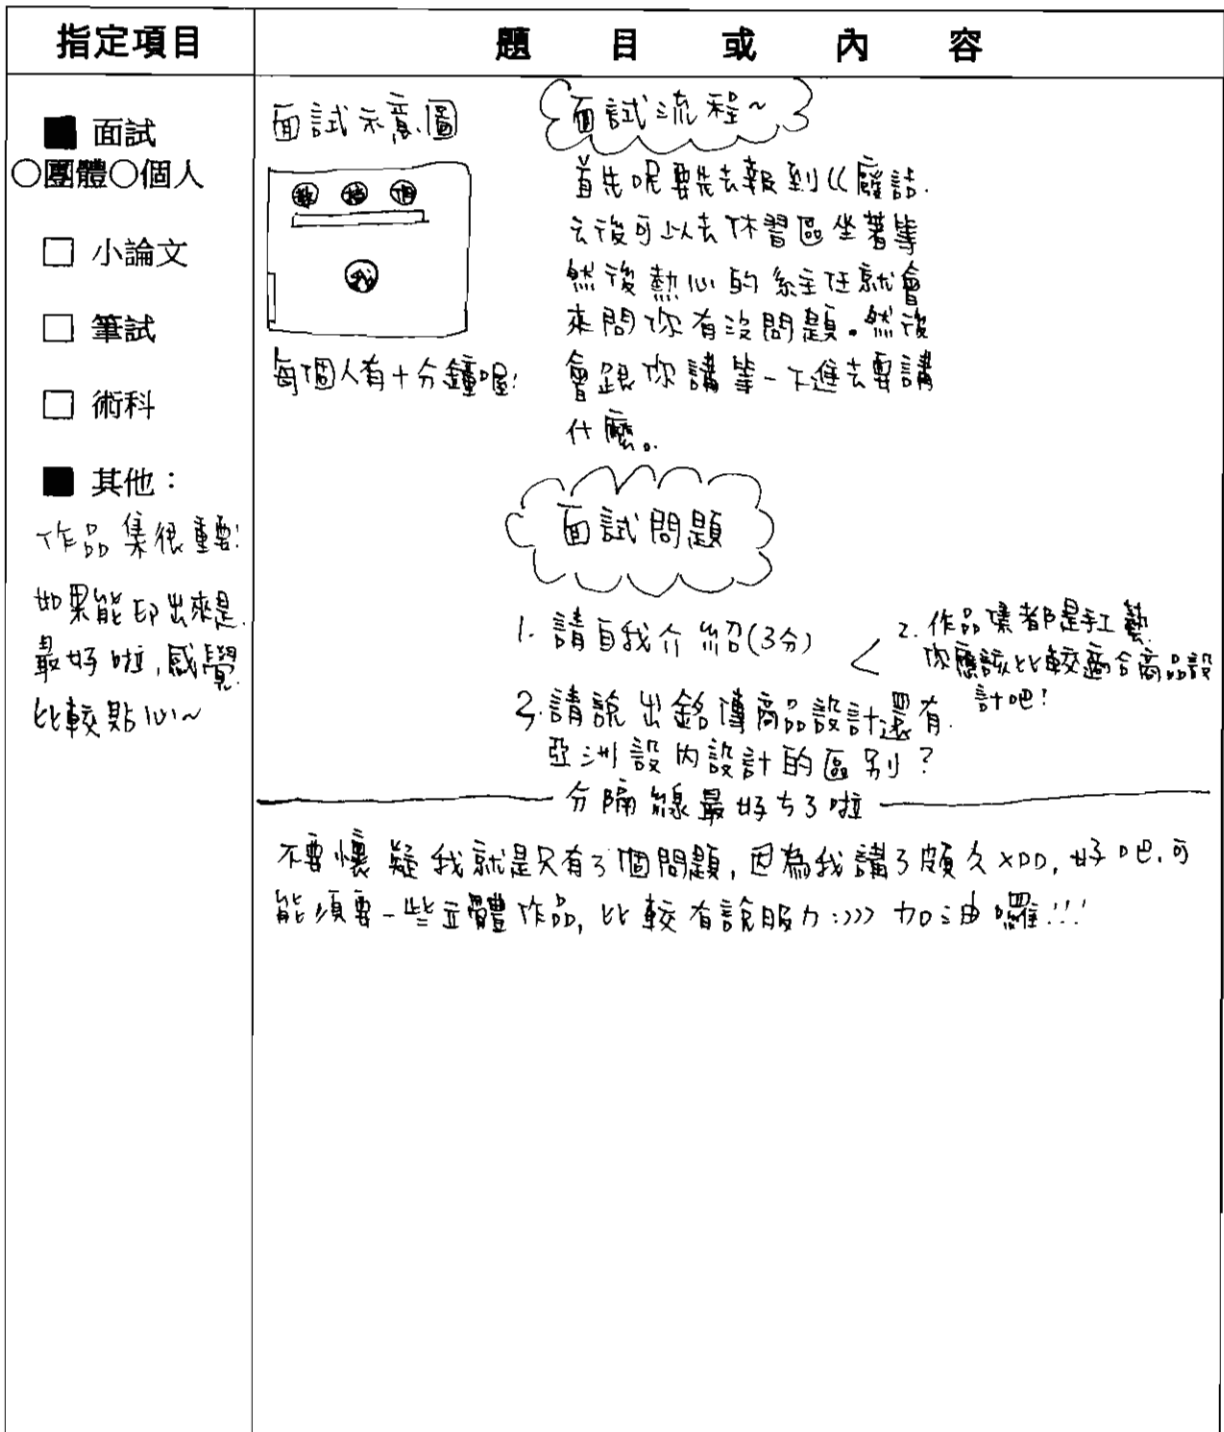 指定項目
題目或內容
■ 面試
○團體○個人
□ 小論文
□ 筆試
□ 術科
■ 其他：
作品集很重要!
如果能印出來是
最好啦,感覺
比較貼心~
面試示意圖
教 授 們
我
每個人有十分鐘喔!
面試流程~
首先呢要先去報到((廢話.
之後可以去休習區坐著等
然後熱心的系主任就會
來問你有沒問題。然後
會跟你講等一下進去要講
什麼。
面試問題
1. 請自我介紹(3分)
2. 作品集都是手工藝
你應該比較適合商品設
計吧!
3. 請說出銘傳商品設計還有
亞洲設內設計的區別?
分隔線最好ㄘ了啦
不要懷疑我就是只有3個問題,因為我講了頗久XDD,好吧,可
能須要一些立體作品,比較有說服力:))) 加油囉!!!